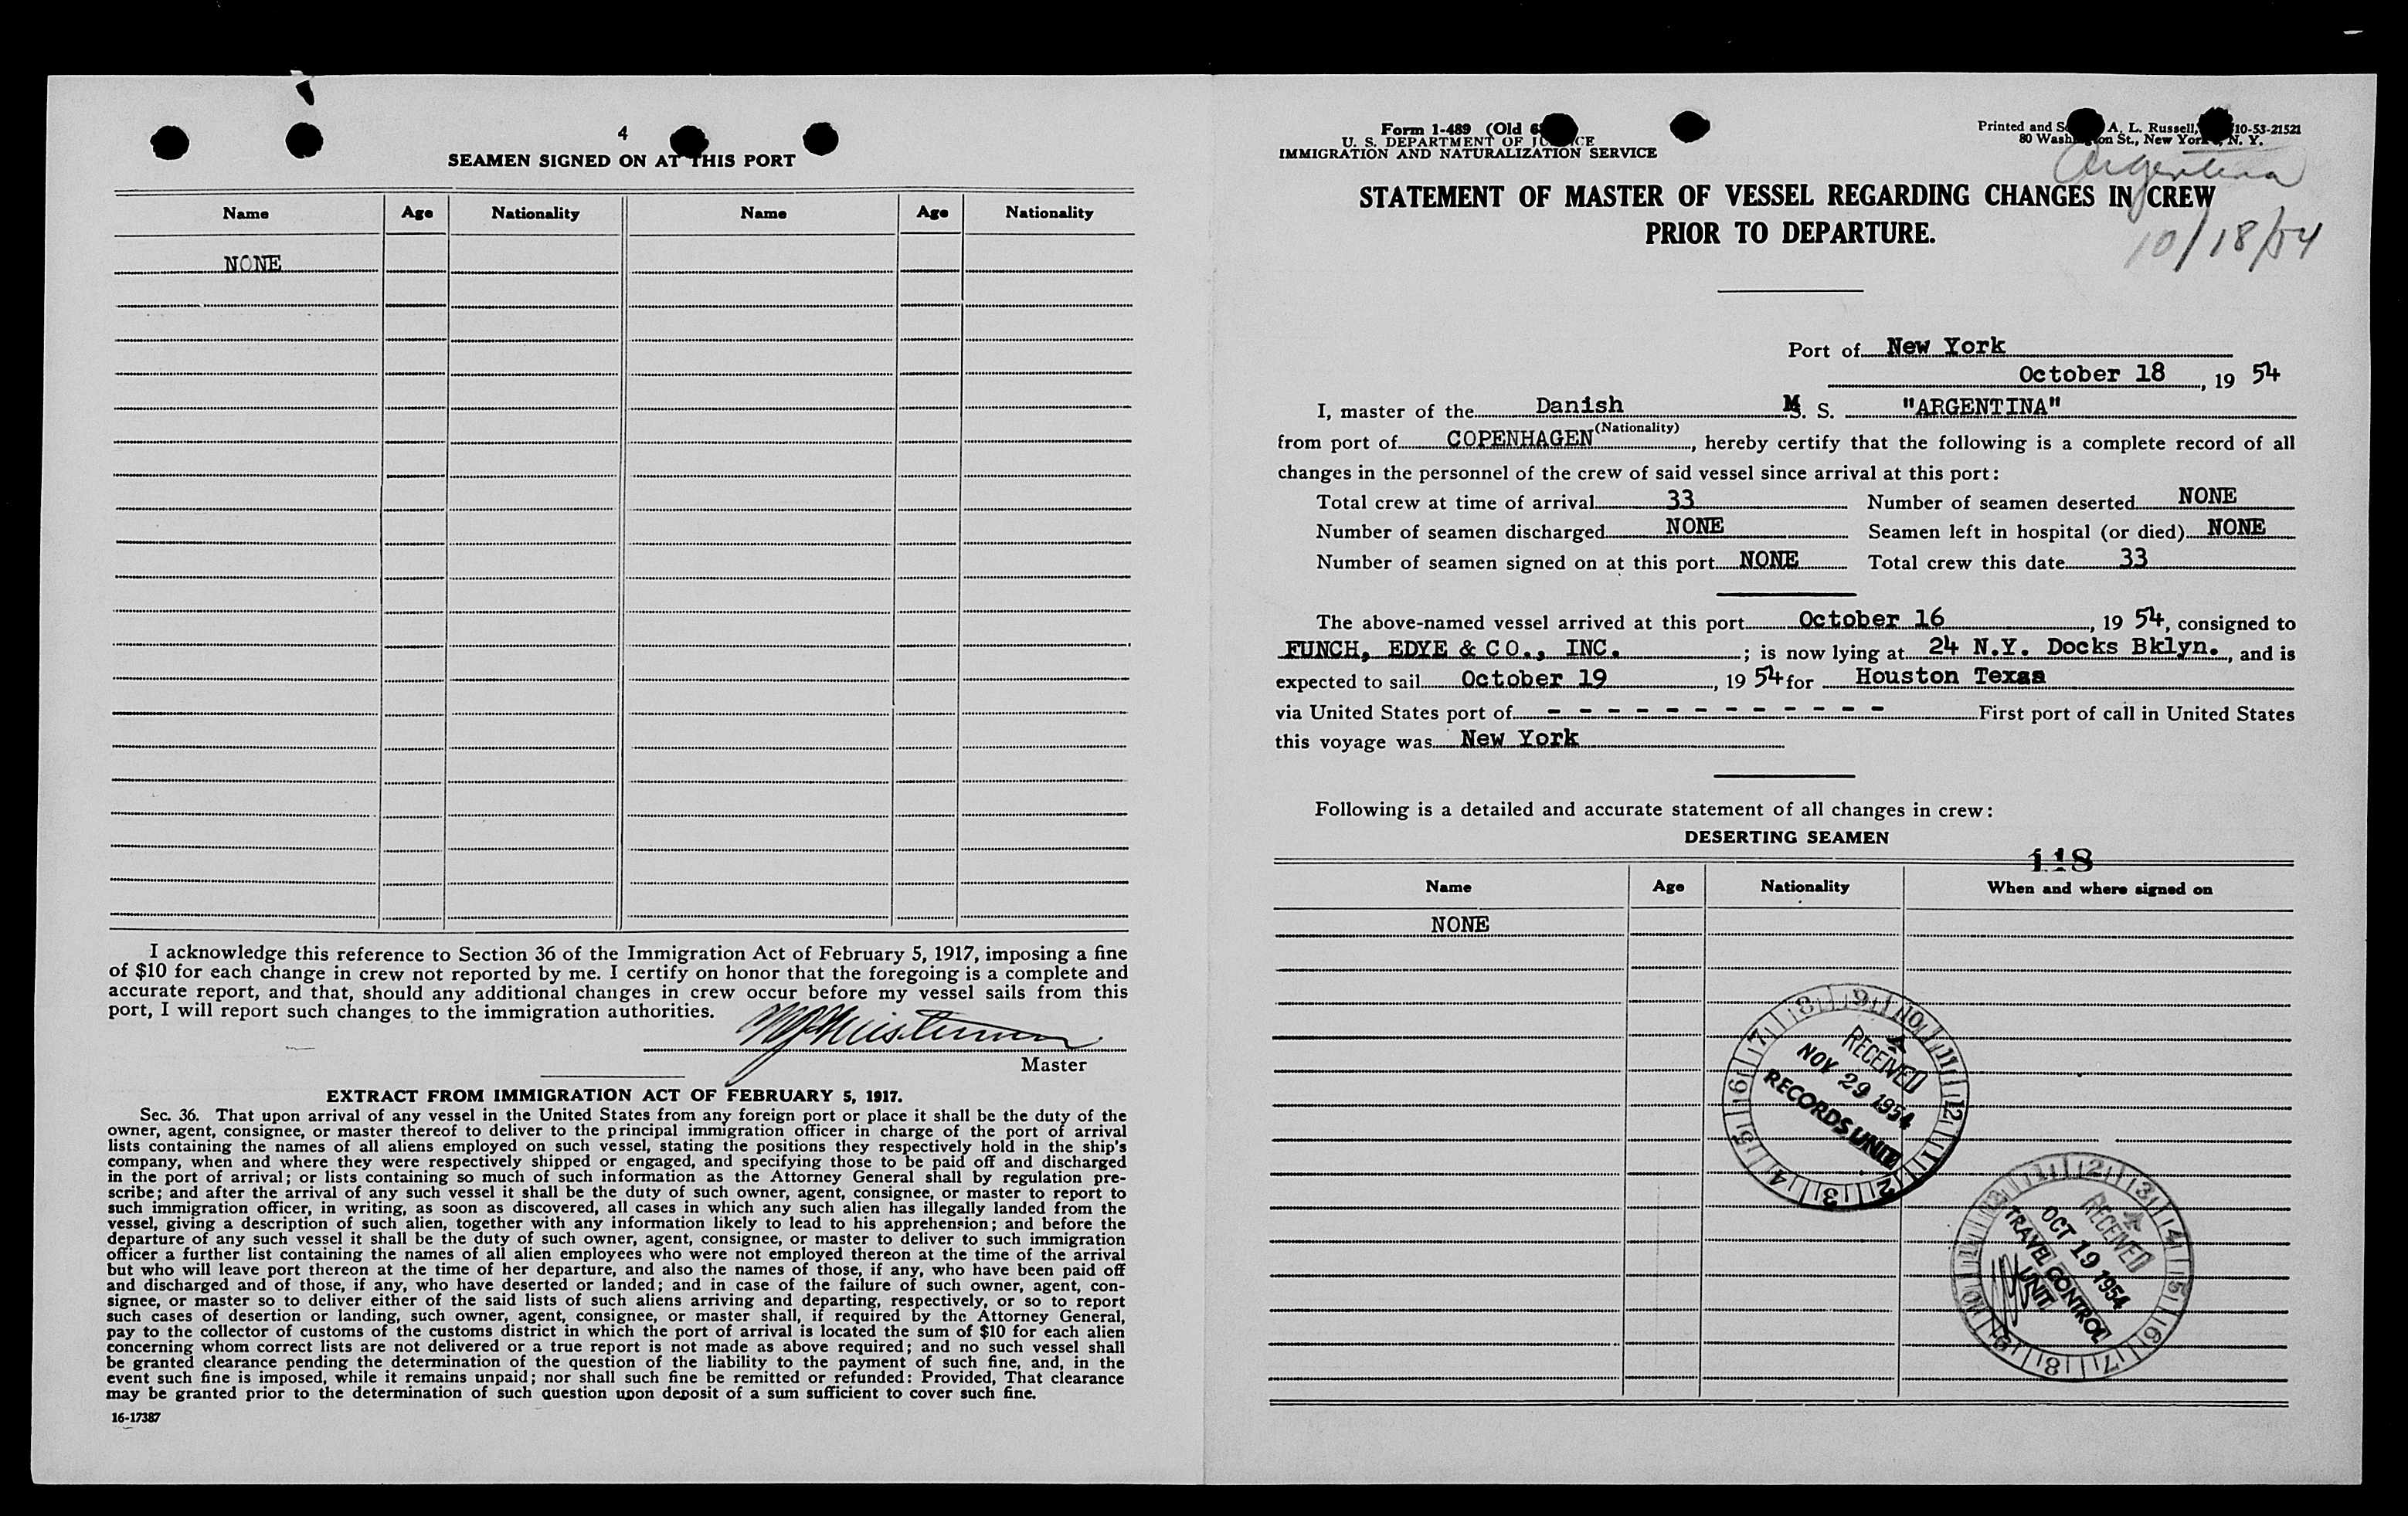 4
SEAMEN SIGNED ON AT THIS PORT
Name Age Nationality Name Age Nationality
NONE
I acknowledge this reference to Section 36 of the Immigration Act of February 5, 1917, imposing a fine
of $10 for each change in crew not reported by me. I certify on honor that the foregoing is a complete and
accurate report, and that, should any additional changes in crew occur before my vessel sails from this
port, I will report such changes to the immigration authorities.
Master
EXTRACT FROM IMMIGRATION ACT OF FEBRUARY 5, 1917.
Sec. 36. That upon arrival of any vessel in the United States from any foreign port or place it shall be the duty of the
owner, agent, consignee, or master thereof to deliver to the principal immigration officer in charge of the port of arrival
lists containing the names of all aliens employed on such vessel, stating the positions they respectively hold in the ship's
company, when and where they were respectively shipped or engaged, and specifying those to be paid off and discharged
in the port of arrival; or lists containing so much of such information as the Attorney General shall by regulation pre-
scribe; and after the arrival of any such vessel it shall be the duty of such owner, agent, consignee, or master to report to
such immigration officer, in writing, as soon as discovered, all cases in which any such alien has illegally landed from the
vessel, giving a description of such alien, together with any information likely to lead to his apprehension; and before the
departure of any such vessel it shall be the duty of such owner, agent, consignee, or master to deliver to such immigration
officer a further list containing the names of all alien employees who were not employed thereon at the time of the arrival
but who will leave port thereon at the time of her departure, and also the names of those, if any, who have been paid off
and discharged and of those, if any, who have deserted or landed; and in case of the failure of such owner, agent, con-
signee, or master so to deliver either of the said lists of such aliens arriving and departing, respectively, or so to report
such cases of desertion or landing, such owner, agent, consignee, or master shall, if required by the Attorney General,
pay to the collector of customs of the customs district in which the port of arrival is located the sum of $10 for each alien
concerning whom correct lists are not delivered or a true report is not made as above required; and no such vessel shall
be granted clearance pending the determination of the question of the liability to the payment of such fine, and, in the
event such fine is imposed, while it remains unpaid; nor shall such fine be remitted or refunded: Provided, That clearance
may be granted prior to the determination of such question upon deposit of a sum sufficient to cover such fine.
16-17387
Form 1-489 (Old
U. S. DEPARTMENT OF JUSTICE
IMMIGRATION AND NATURALIZATION SERVICE
Printed and A. L. Russell, 10-53-21521
80 Washington St., New York, N. Y.
Argentina
10/18/54
STATEMENT OF MASTER OF VESSEL REGARDING CHANGES IN CREW
PRIOR TO DEPARTURE.
Port of New York
October 18, 19 54
I, master of the Danish M. S. "ARGENTINA"
(Nationality)
from port of COPENHAGEN, hereby certify that the following is a complete record of all
changes in the personnel of the crew of said vessel since arrival at this port:
Total crew at time of arrival 33 Number of seamen deserted NONE
Number of seamen discharged NONE Seamen left in hospital (or died) NONE
Number of seamen signed on at this port NONE Total crew this date 33
The above-named vessel arrived at this port October 16, 19 54, consigned to
FUNCH, EDYE & CO., INC. ; is now lying at 24 N.Y. Docks Bklyn., and is
expected to sail October 19, 19 54 for Houston Texas
via United States port of - - - - - - - - - - - - First port of call in United States
this voyage was New York
Following is a detailed and accurate statement of all changes in crew:
DESERTING SEAMEN
118
Name Age Nationality When and where signed on
NONE
RECEIVED
NOV 29 1954
RECORDS UNIT
1 2 3 4 5 6 7 8 9 10 11 12
RECEIVED
OCT 19 1954
TRAVEL CONTROL
UNIT
12 1 2 3 4 5 6 7 8 9 10 11